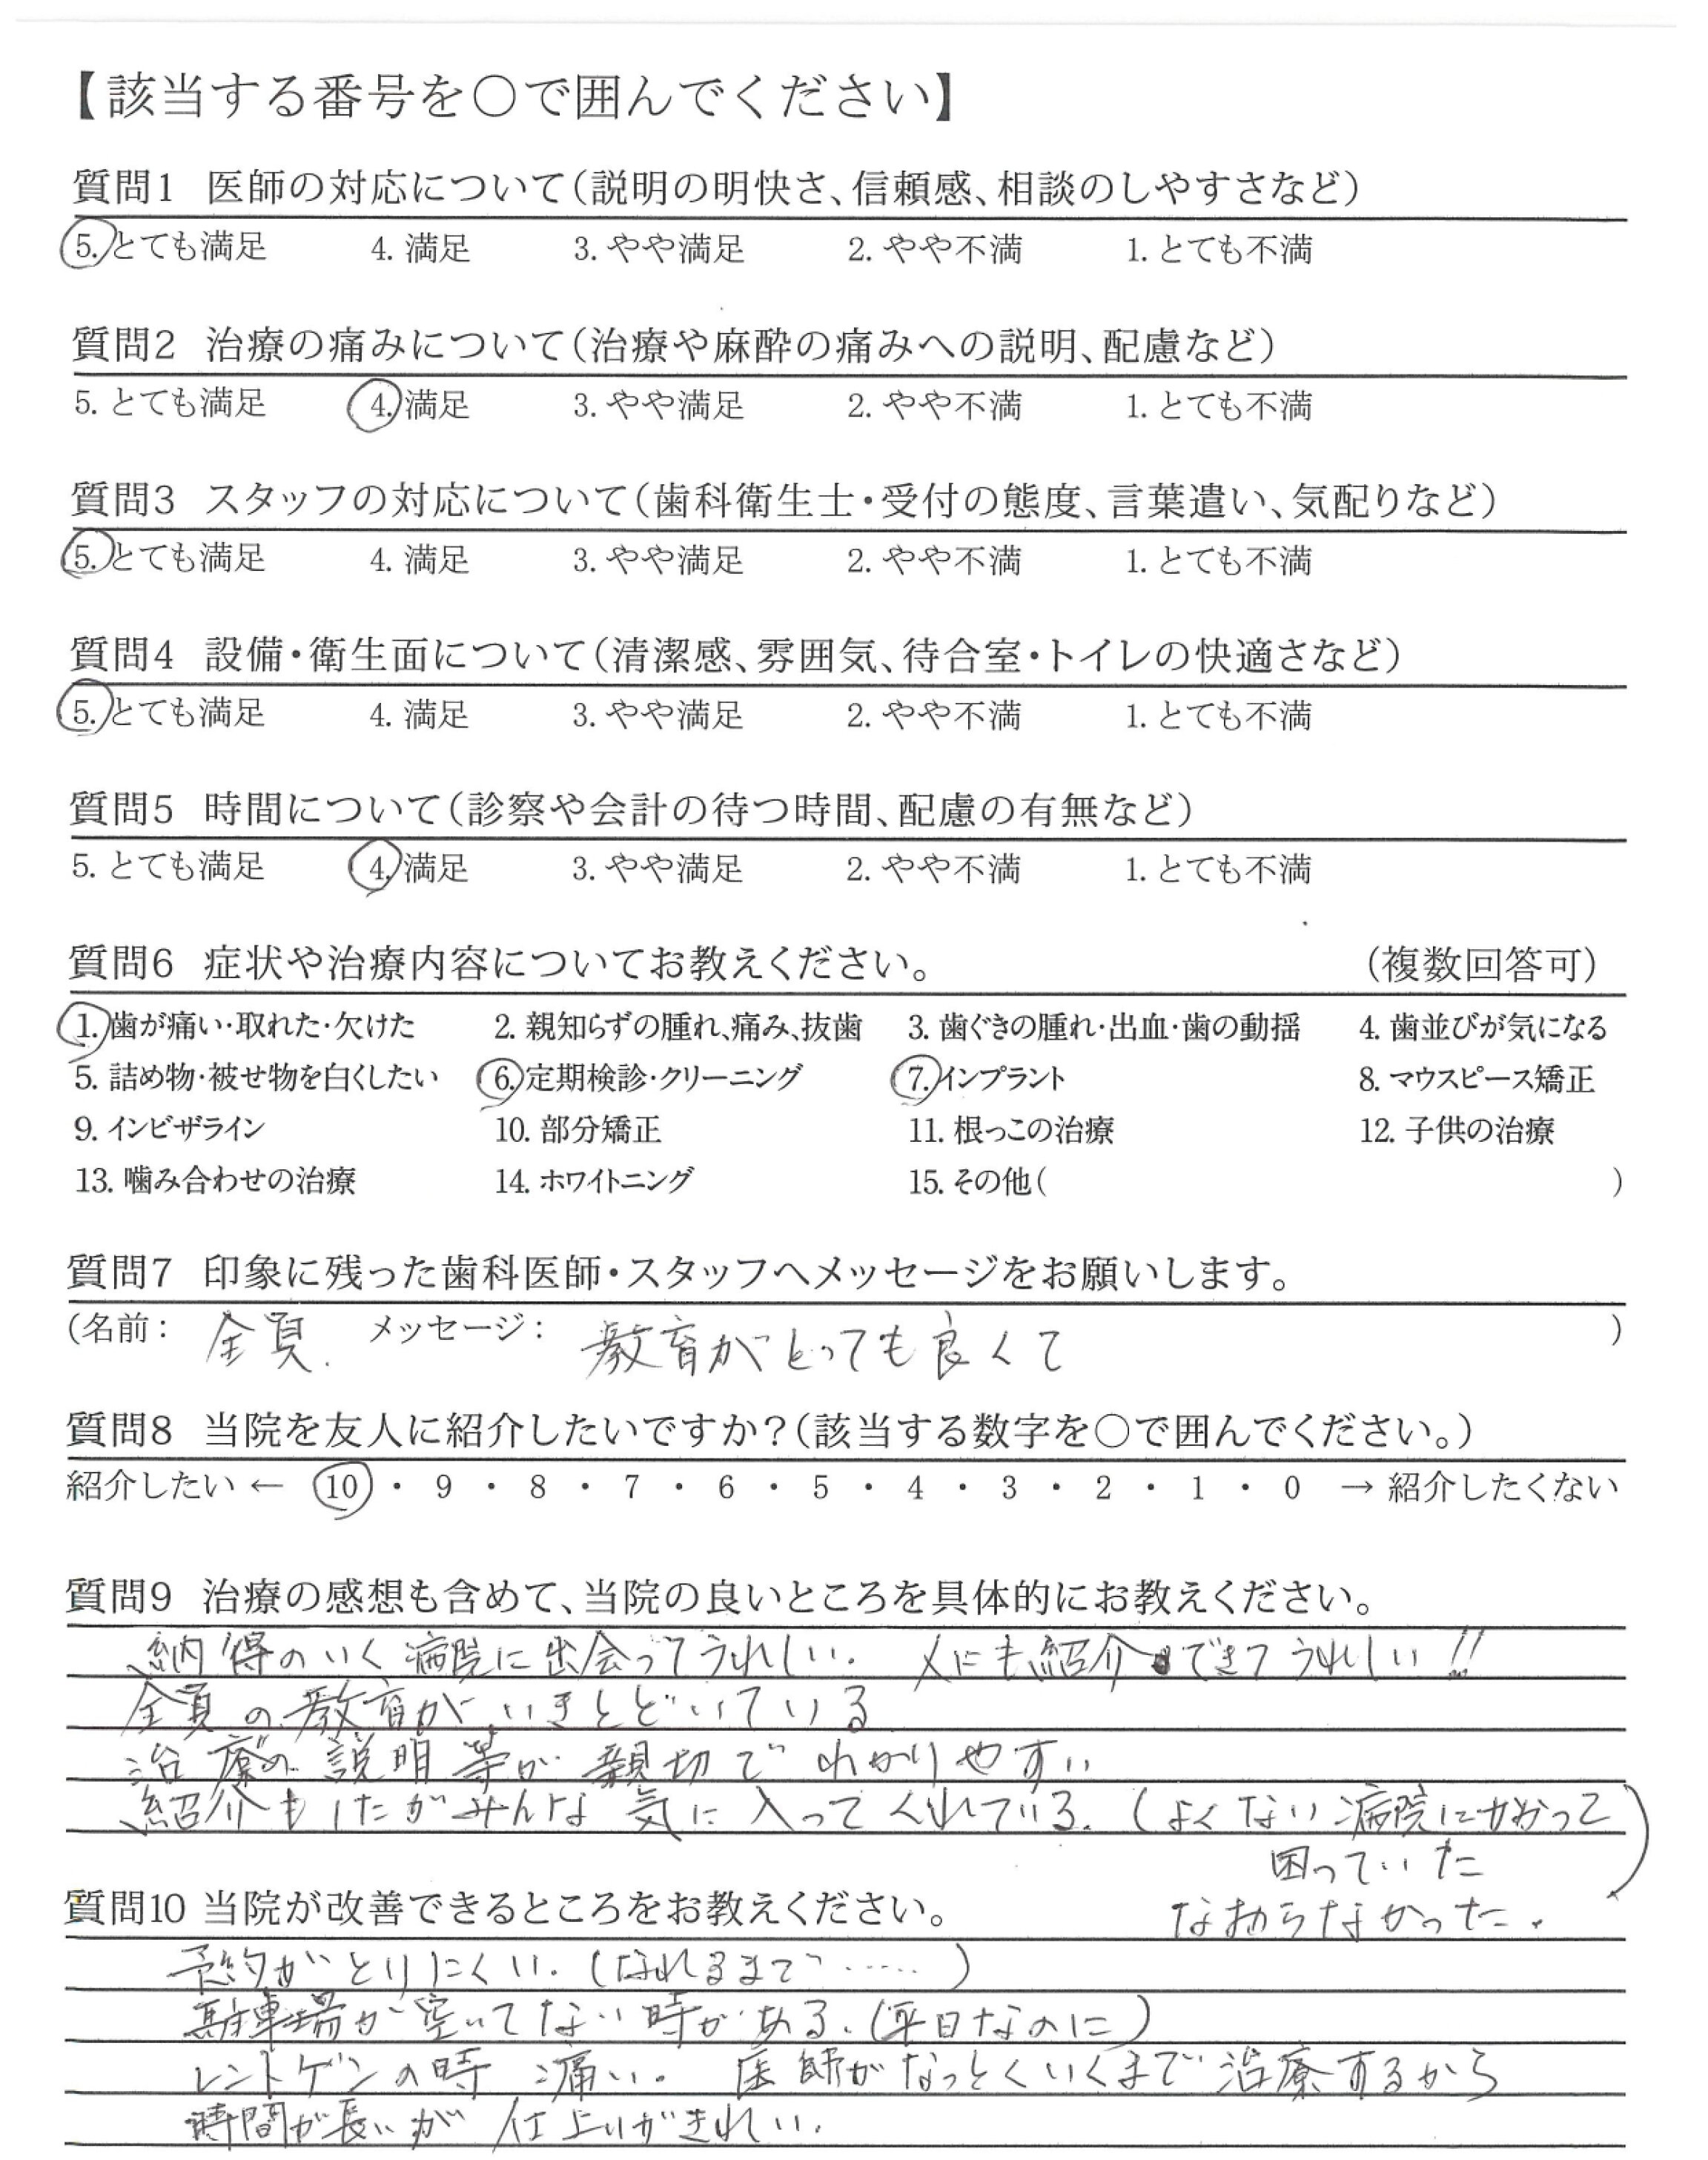 【該当する番号を○で囲んでください】
質問1 医師の対応について（説明の明快さ、信頼感、相談のしやすさなど）
5. とても満足 4. 満足 3. やや満足 2. やや不満 1. とても不満
質問2 治療の痛みについて（治療や麻酔の痛みへの説明、配慮など）
5. とても満足 4. 満足 3. やや満足 2. やや不満 1. とても不満
質問3 スタッフの対応について（歯科衛生士・受付の態度、言葉遣い、気配りなど）
5. とても満足 4. 満足 3. やや満足 2. やや不満 1. とても不満
質問4 設備・衛生面について（清潔感、雰囲気、待合室・トイレの快適さなど）
5. とても満足 4. 満足 3. やや満足 2. やや不満 1. とても不満
質問5 時間について（診察や会計の待つ時間、配慮の有無など）
5. とても満足 4. 満足 3. やや満足 2. やや不満 1. とても不満
質問6 症状や治療内容についてお教えください。 （複数回答可）
1. 歯が痛い・取れた・欠けた 2. 親知らずの腫れ、痛み、抜歯 3. 歯ぐきの腫れ・出血・歯の動揺 4. 歯並びが気になる
5. 詰め物・被せ物を白くしたい 6. 定期検診・クリーニング 7. インプラント 8. マウスピース矯正
9. インビザライン 10. 部分矯正 11. 根っこの治療 12. 子供の治療
13. 噛み合わせの治療 14. ホワイトニング 15. その他( )
質問7 印象に残った歯科医師・スタッフへメッセージをお願いします。
（名前： 全員. メッセージ： 教育がとっても良くて ）
質問8 当院を友人に紹介したいですか？（該当する数字を○で囲んでください。）
紹介したい ← 10 ・ 9 ・ 8 ・ 7 ・ 6 ・ 5 ・ 4 ・ 3 ・ 2 ・ 1 ・ 0 → 紹介したくない
質問9 治療の感想も含めて、当院の良いところを具体的にお教えください。
納得のいく病院に出会ってうれしい. 人にも紹介できてうれしい!!
全員の教育がいきとどいている
治療の説明等が親切でわかりやすい
紹介もしたがみんな気に入ってくれている.（よくない病院にかかって
困っていた）
なおらなかった.
質問10 当院が改善できるところをお教えください。
予約がとりにくい.（なれるまで……）
駐車場が空いてない時がある.（平日なのに）
レントゲンの時 痛い。 医師がなっとくいくまで治療するから
時間が長いが 仕上りがきれい.